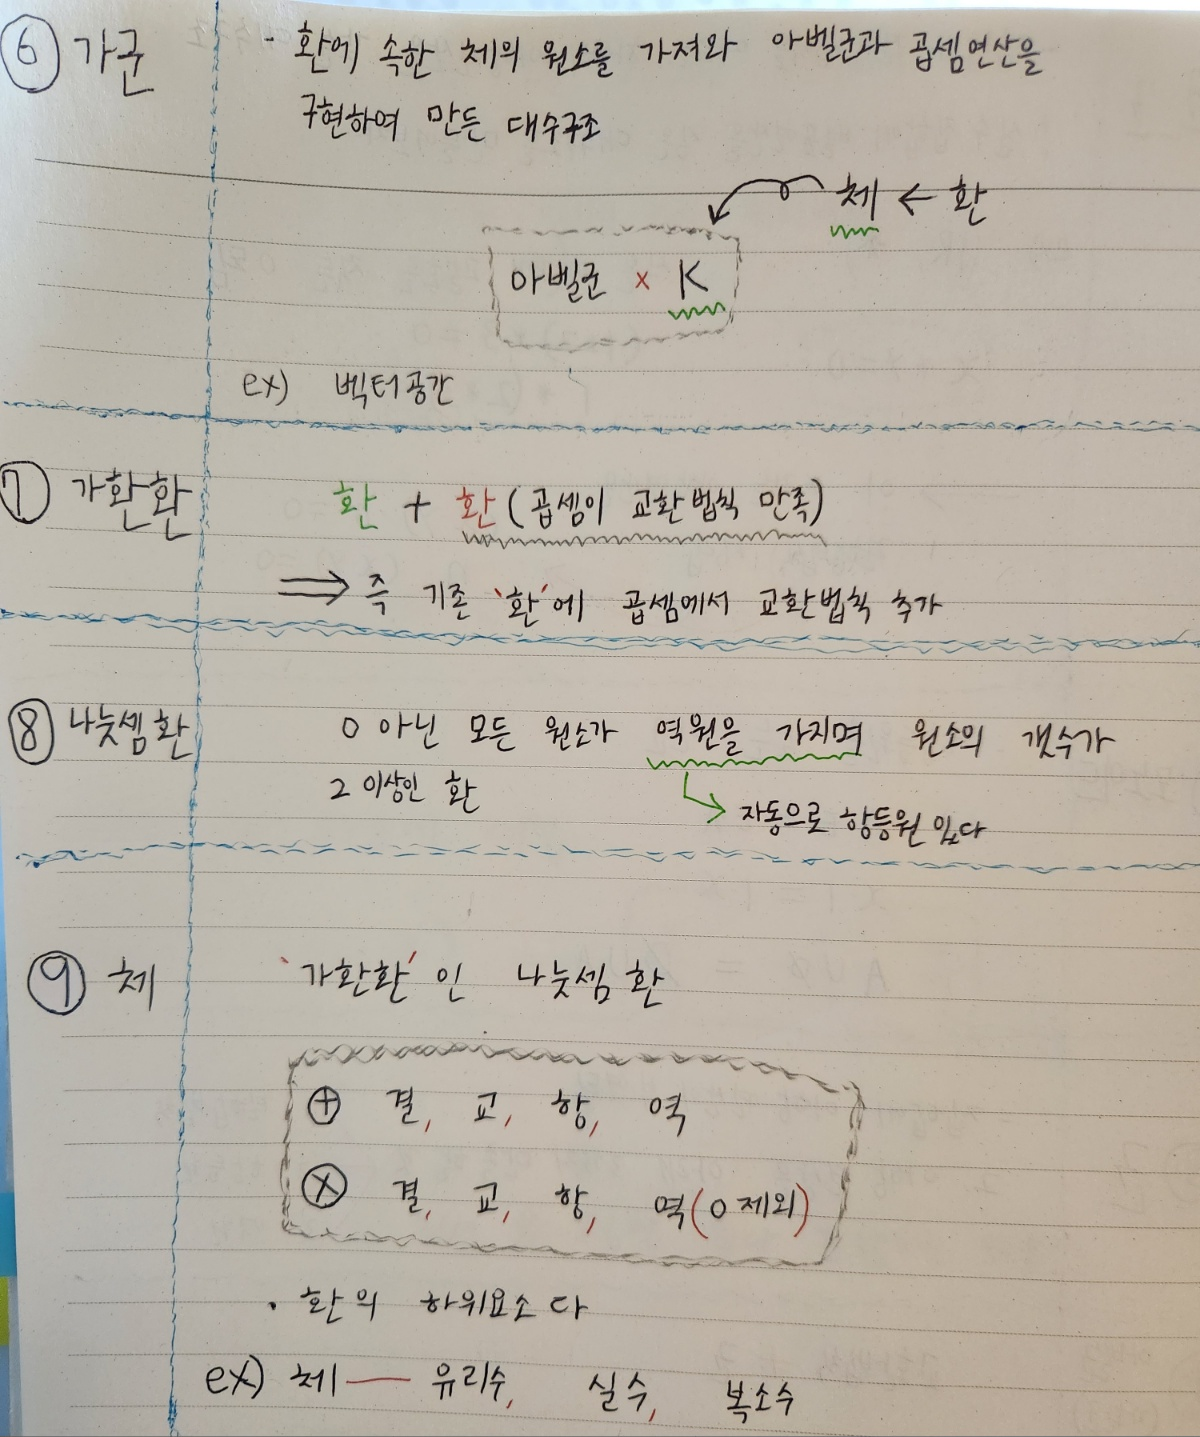 ⑥ 가군 - 환에 속한 체의 원소를 가져와 아벨군과 곱셈연산을
구현하여 만든 대수구조
체 ← 환
아벨군 × K
ex) 벡터공간
⑦ 가환환 환 + 환 (곱셈이 교환법칙 만족)
⇒ 즉 기존 '환'에 곱셈에서 교환법칙 추가
⑧ 나눗셈환 0 아닌 모든 원소가 역원을 가지며 원소의 갯수가
2 이상인 환
↳ 자동으로 항등원 있다
⑨ 체 '가환환'인 나눗셈 환
⊕ 결, 교, 항, 역
⊗ 결, 교, 항, 역(0 제외)
· 환의 하위요소다
ex) 체 — 유리수, 실수, 복소수